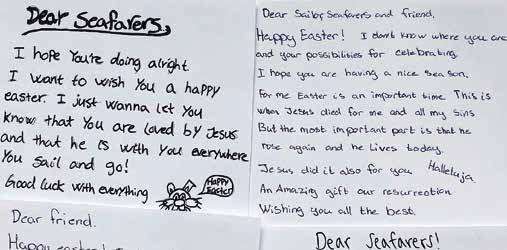 Dear Seafarers,
I hope You're doing alright.
I want to wish You a happy
easter. I just wanna let You
know that You are loved by Jesus
and that he is with you everywhere
You sail and go!
Good luck with everything
Happy
Easter
Dear Sailor, Seafarers and friend,
Happy Easter! I don't know where you are
and your possibilities for celebrating.
I hope you are having a nice season.
For me Easter is an important time This is
when Jesus died for me and all my sins
But the most important part is that he
rose again and he lives today.
Jesus did it also for you Halleluja
An Amazing gift our resurrection
Wishing you all the best.
Dear friend.
Happy easter!
Dear Seafarers!